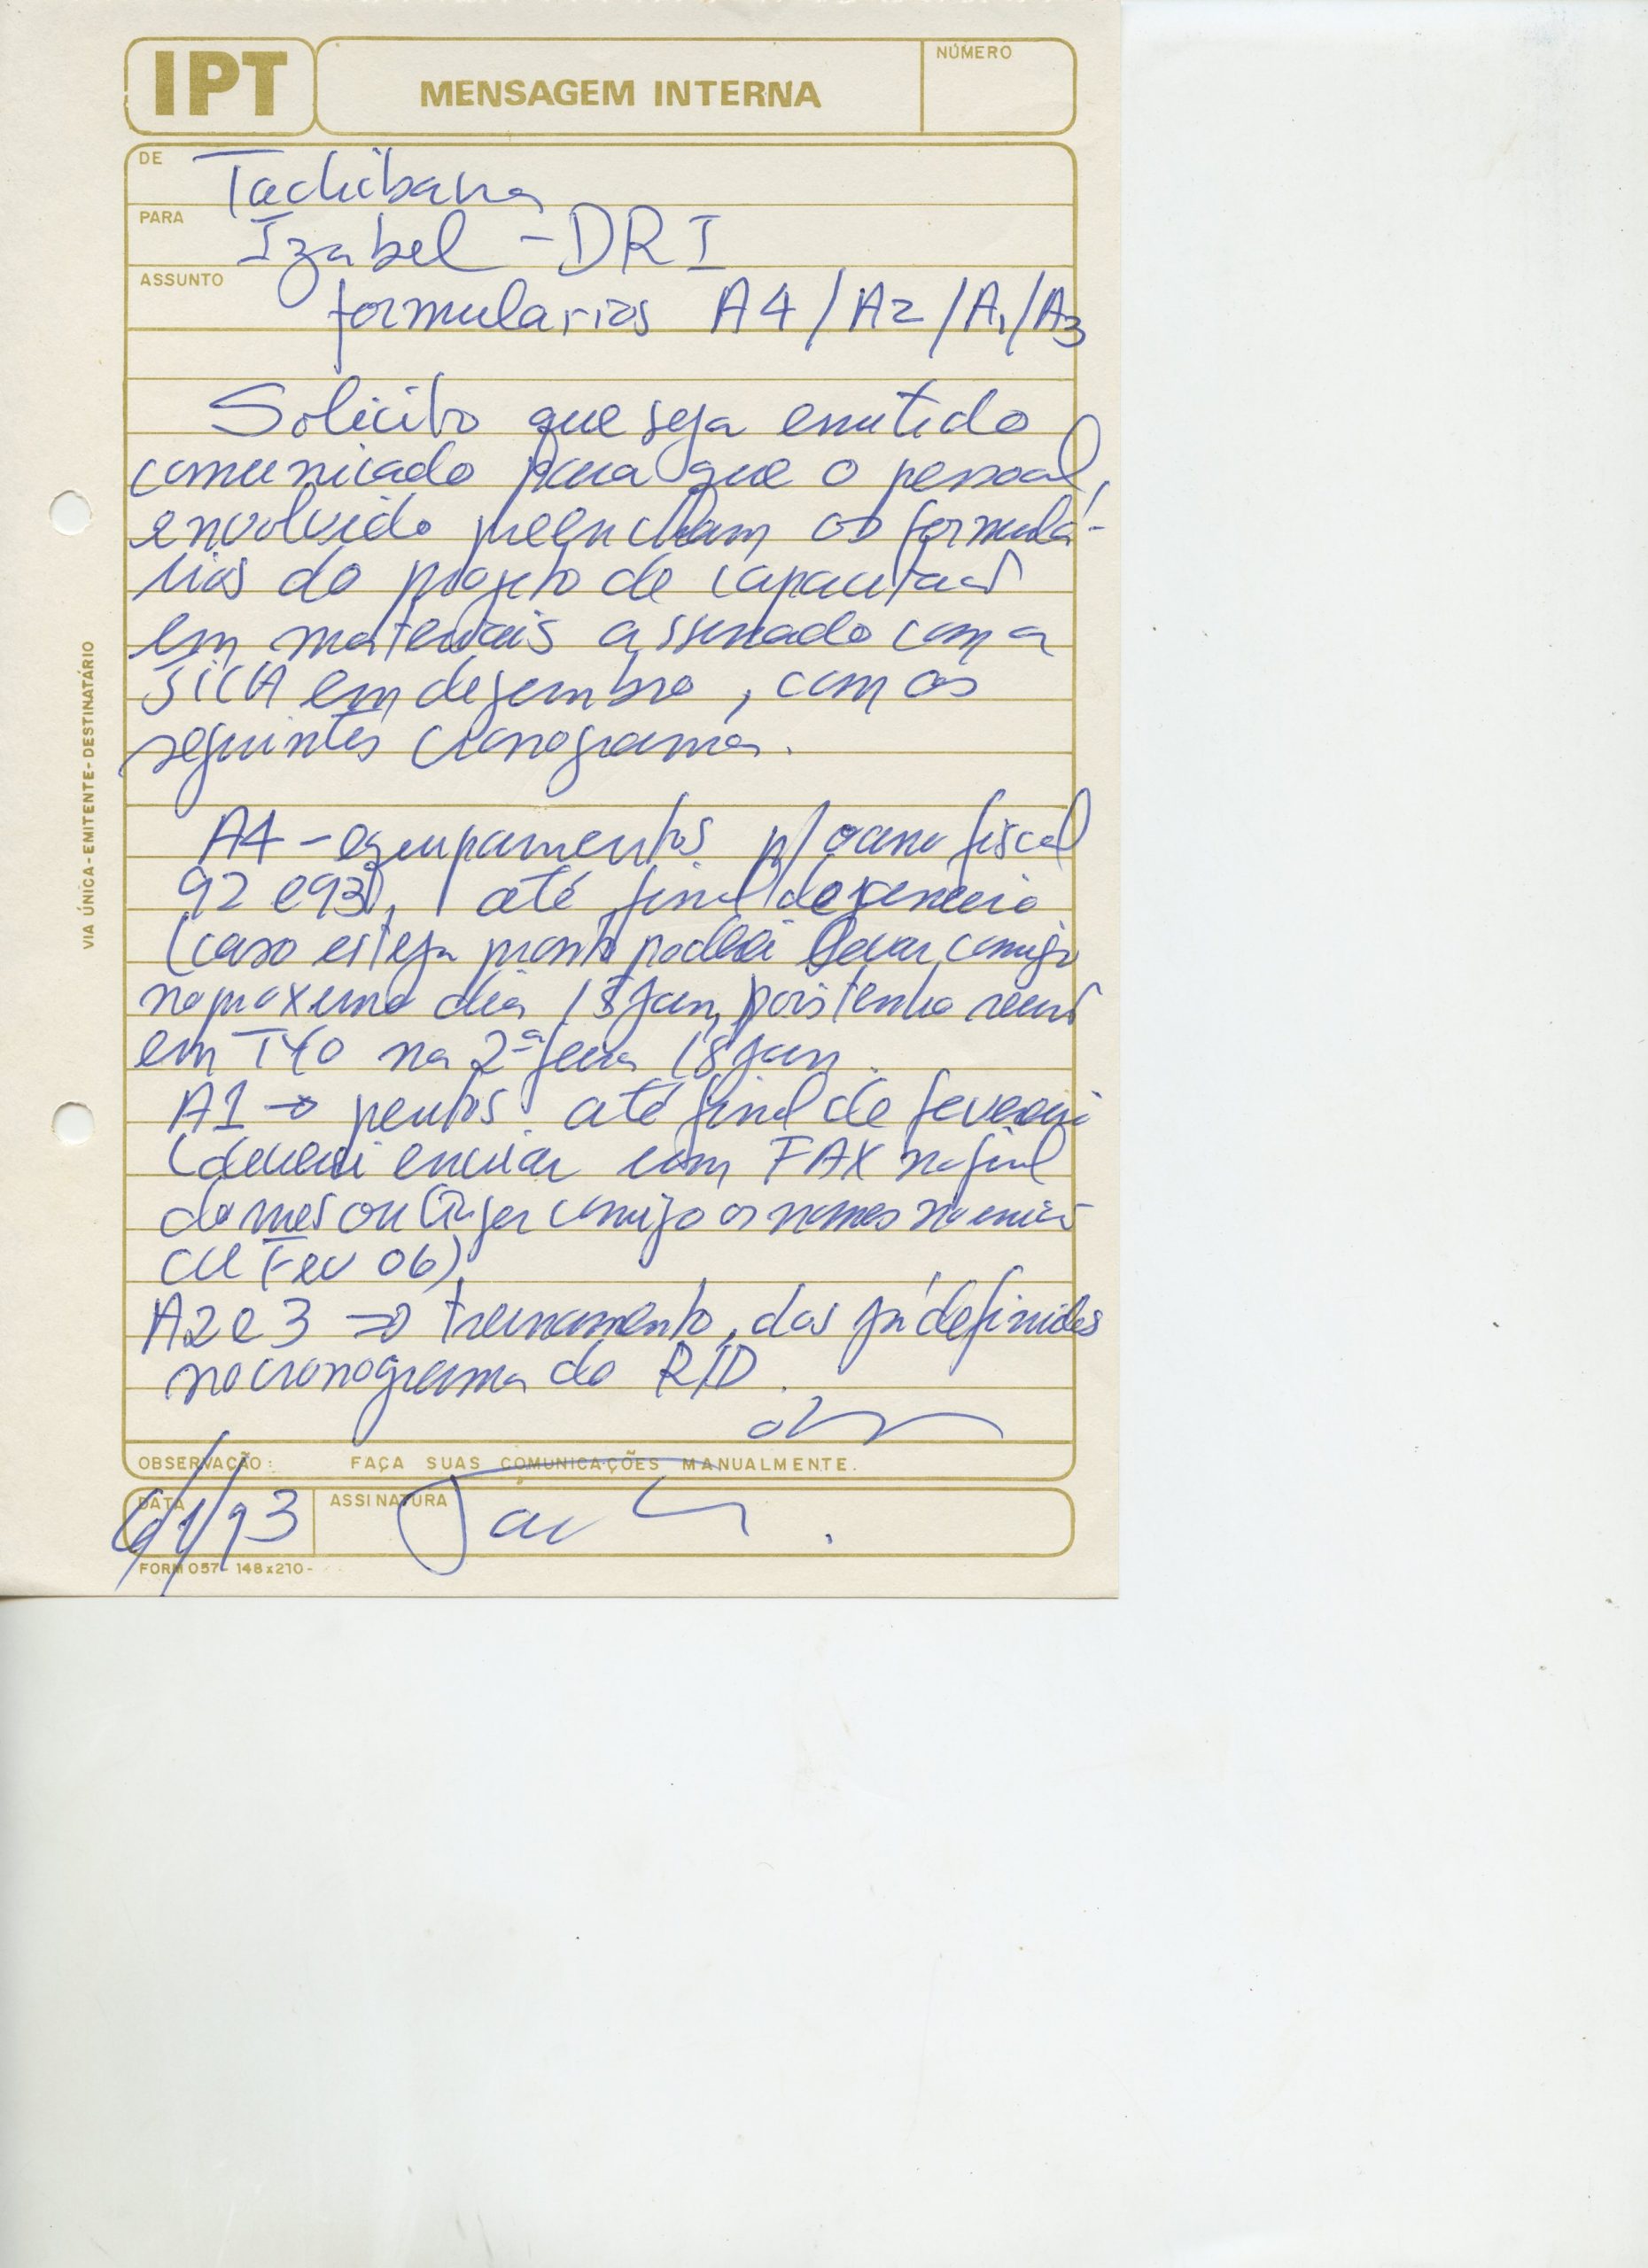 IPT
MENSAGEM INTERNA
NÚMERO
DE Tachibana
PARA Izabel - DRI
ASSUNTO formularios A4/A2/A1/A3
Solicito que seja emitido
comunicado para que o pessoal,
envolvido preencham os formulá-
rios do projeto de capacitacão
em materiais assinado com a
JICA em dezembro, com os
seguintes cronogramas.
A4 - equipamentos p/ o ano fiscal
92 e 93), até final de janeiro
(caso esteja pronto poderei levar comigo
no proximo dia 15 jan, pois tenho reunião
em TYO na 2ª feira 18 jan.
A1 → peritos até final de fevereiro
(deverei enviar um FAX no final
do mes ou trazer comigo os nomes no inicio
de Fev 06)
A2 e 3 ⇒ treinamento, das já definidas
no cronograma do R/D.
OBSERVAÇÃO: FAÇA SUAS COMUNICAÇÕES MANUALMENTE.
DATA /1/93
ASSINATURA
FORM 057- 148x210-
VIA ÚNICA-EMITENTE-DESTINATÁRIO